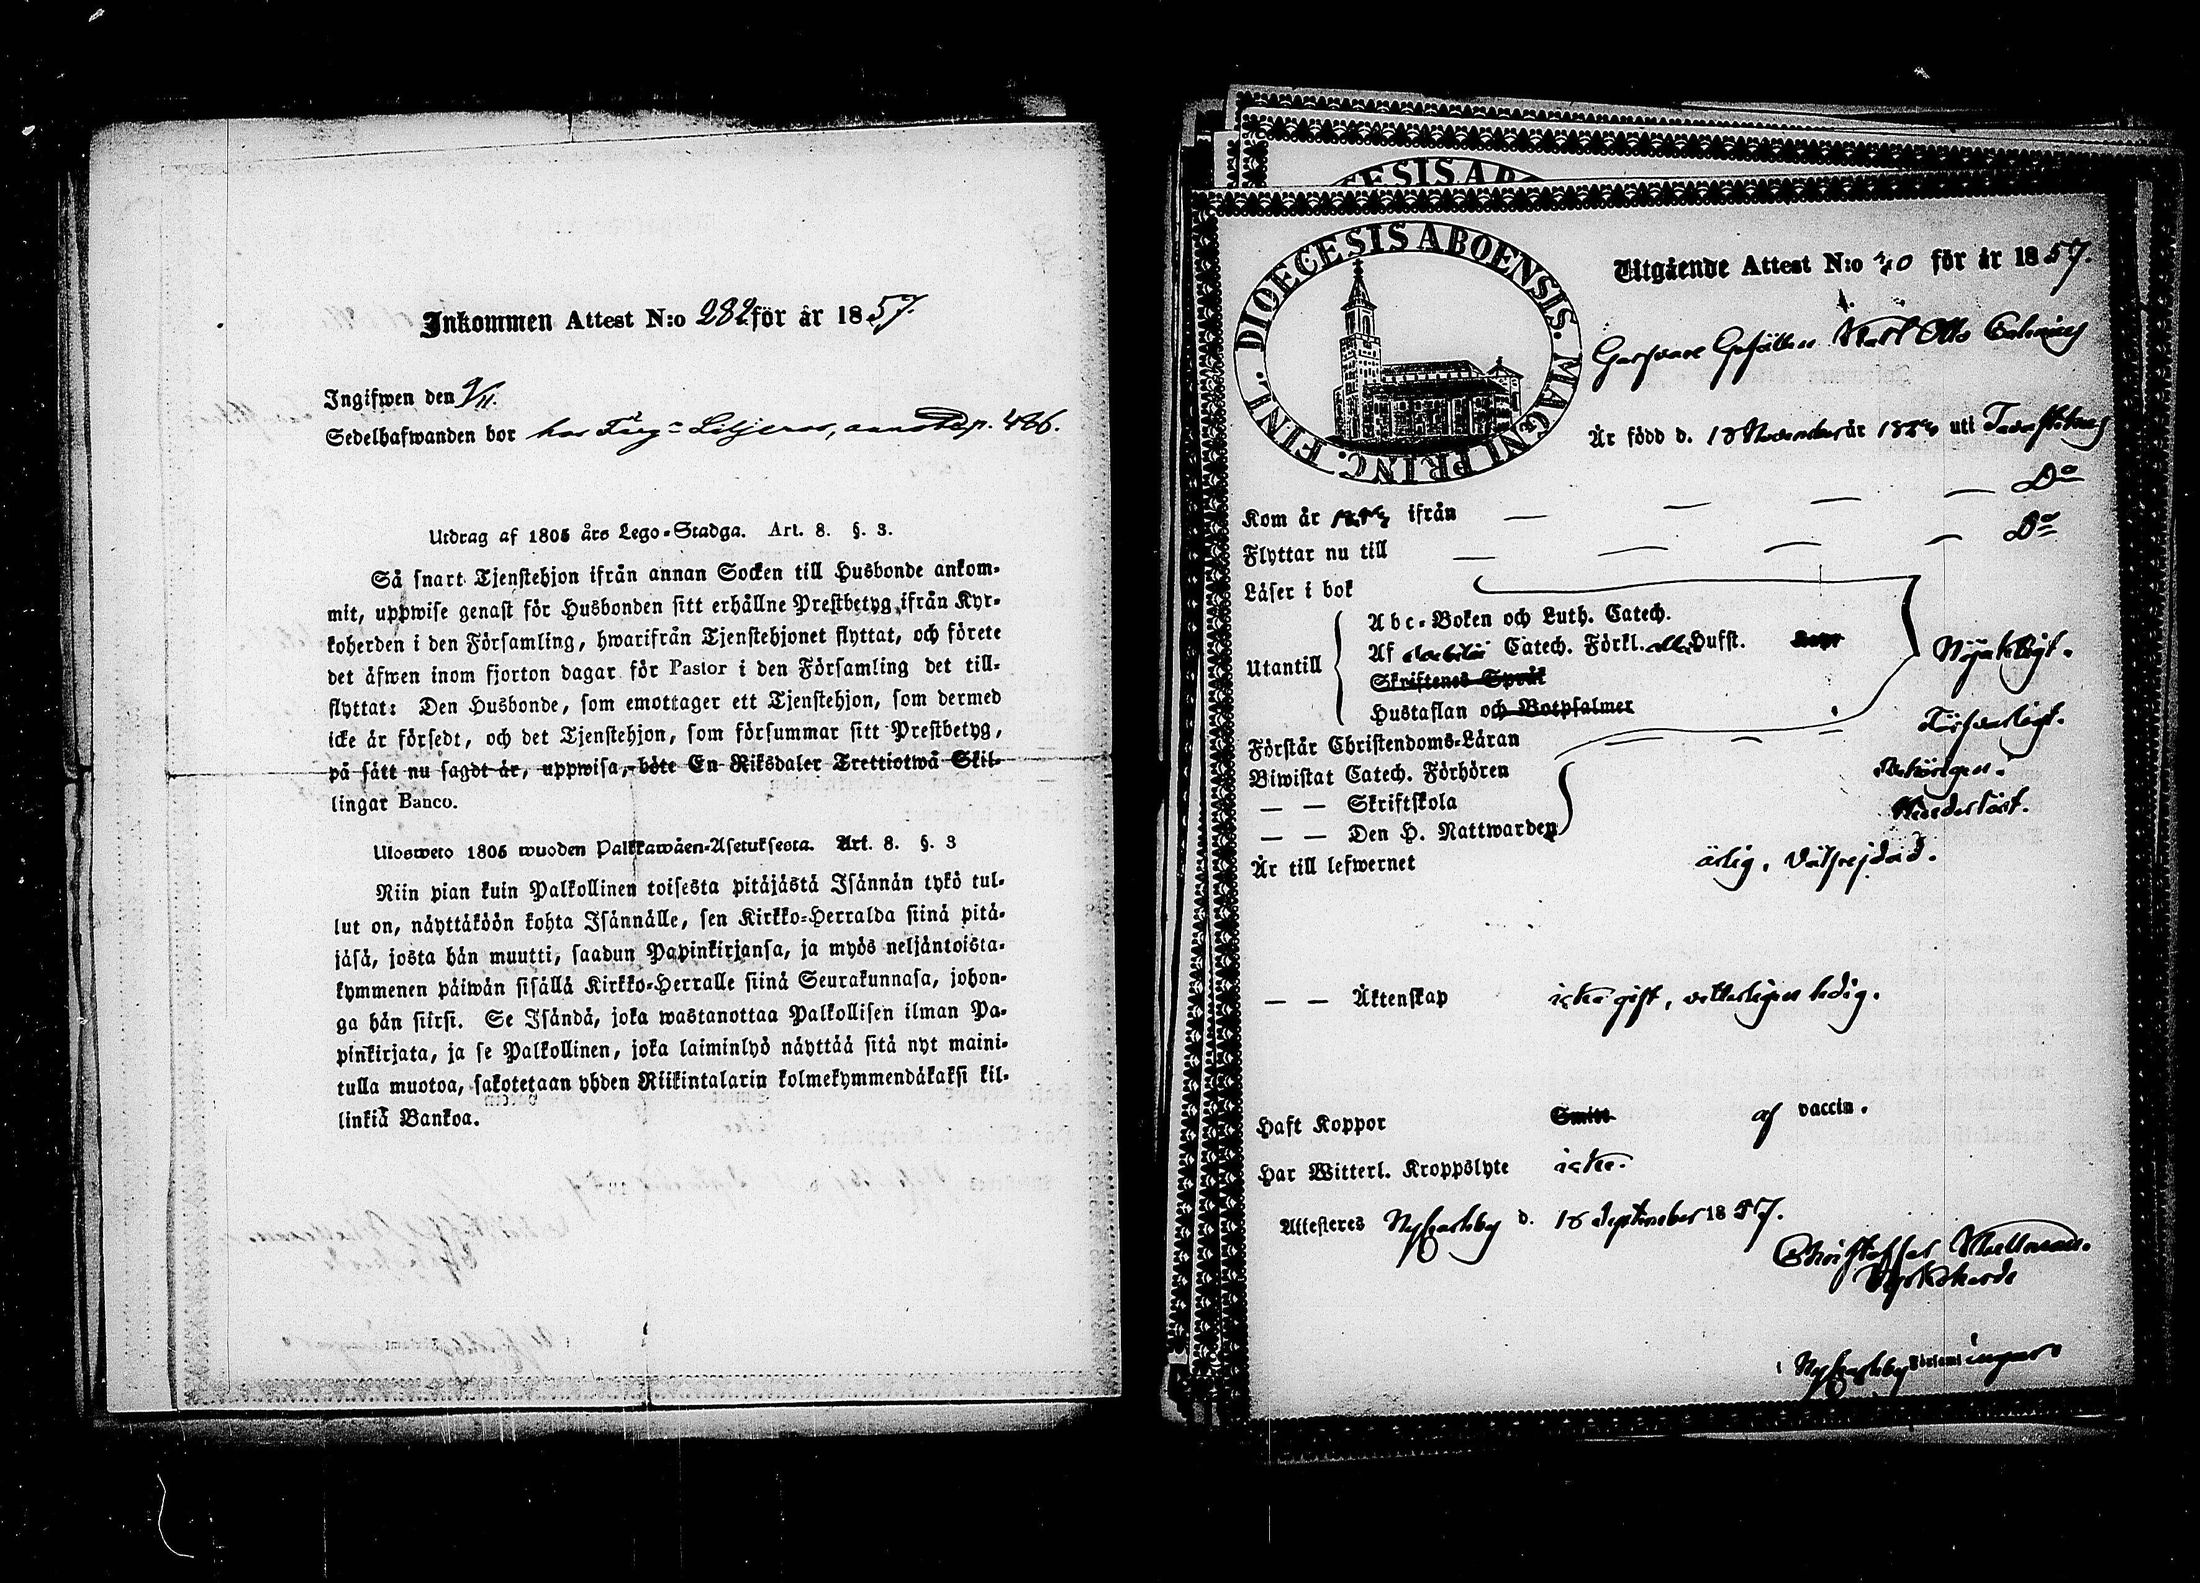 Inkommen Attest N:o 282 för år 1857.
Ingifwen den 9/11.
Sedelhafwanden bor hos Färg= Liljeros, p. 486.
Utdrag af 1805 års Lego-Stadga. Art. 8. §. 3.
Så snart Tjenstehjon ifrån annan Socken till Husbonde ankom-
mit, uppwise genast för Husbonden sitt erhållne Prestbetyg ifrån Kyr-
koherden i den Församling, hwarifrån Tjenstehjonet flyttat, och förete
det äfwen inom fjorton dagar för Pastor i den Församling det till-
flyttat: Den Husbonde, som emottager ett Tjenstehjon, som dermed
icke är försedt, och det Tjenstehjon, som försummar sitt Prestbetyg,
på sätt nu sagdt är, uppwisa, böte En Riksdaler Trettiotwå Skil-
lingar Banco.
Ulosweto 1805 wuoden Palkkawäen-Asetuksesta. Art. 8. §. 3
Niin pian kuin Palkollinen toisesta pitäjästä Isännän tykö tul-
lut on, näyttäköön kohta Isännälle, sen Kirkko-Herralda siinä pitä-
jäsä, josta hän muutti, saadun Papinkirjansa, ja myös neljäntoista-
kymmenen päiwän sisällä Kirkko-Herralle siinä Seurakunnasa, johon-
ga hän siirsi. Se Isändä, joka wastanottaa Palkollisen ilman Pa-
pinkirjata, ja se Palkollinen, joka laiminlyö näyttää sitä nyt maini-
tulla muotoa, sakotetaan yhden Riikintalarin kolmekymmendäkaksi kil-
linkiä Bankoa.
DIOECESIS ABOENSIS. MAGNI PRINC. FINL.
Utgående Attest N:o 40 för år 1857.
Garfvare Gesällen Karl Otto
Är född d. 18 November år uti Tavastehus
Kom år ifrån — — — — Do
Flyttar nu till — — — — Do
Läser i bok
Utantill
Abc-Boken och Luth. Catech.
Af Catech. Förkl. Hufst.
Skriftenes Språk
Hustaflan och Botpsalmer
Nöjaktligt.
Förstår Christendoms-Läran — — — Försvarligt.
Biwistat Catech. Förhören behörigen.
— — Skriftskola
— — Den H. Nattwarden
Är till lefwernet ärlig, välfrejdad.
— — Äktenskap icke gift, vitterligen ledig.
Haft Koppor Smitt af vaccin.
Har Witterl. Kroppslyte icke.
Attesteres Nykarleby d. 18 September 1857.
Christoffer
Kyrkoherde
i Nykarleby Församlingar